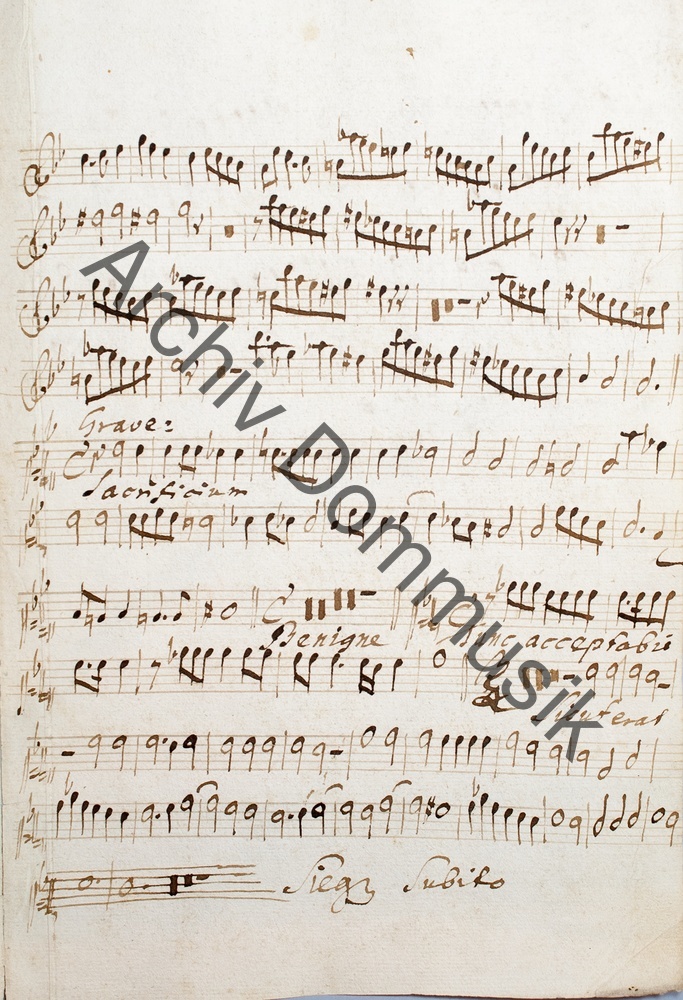 Grave:
Sacrificium
Benigne
Tunc acceptabis
Sicut erat
Siegr Subito
Archiv Dommusik